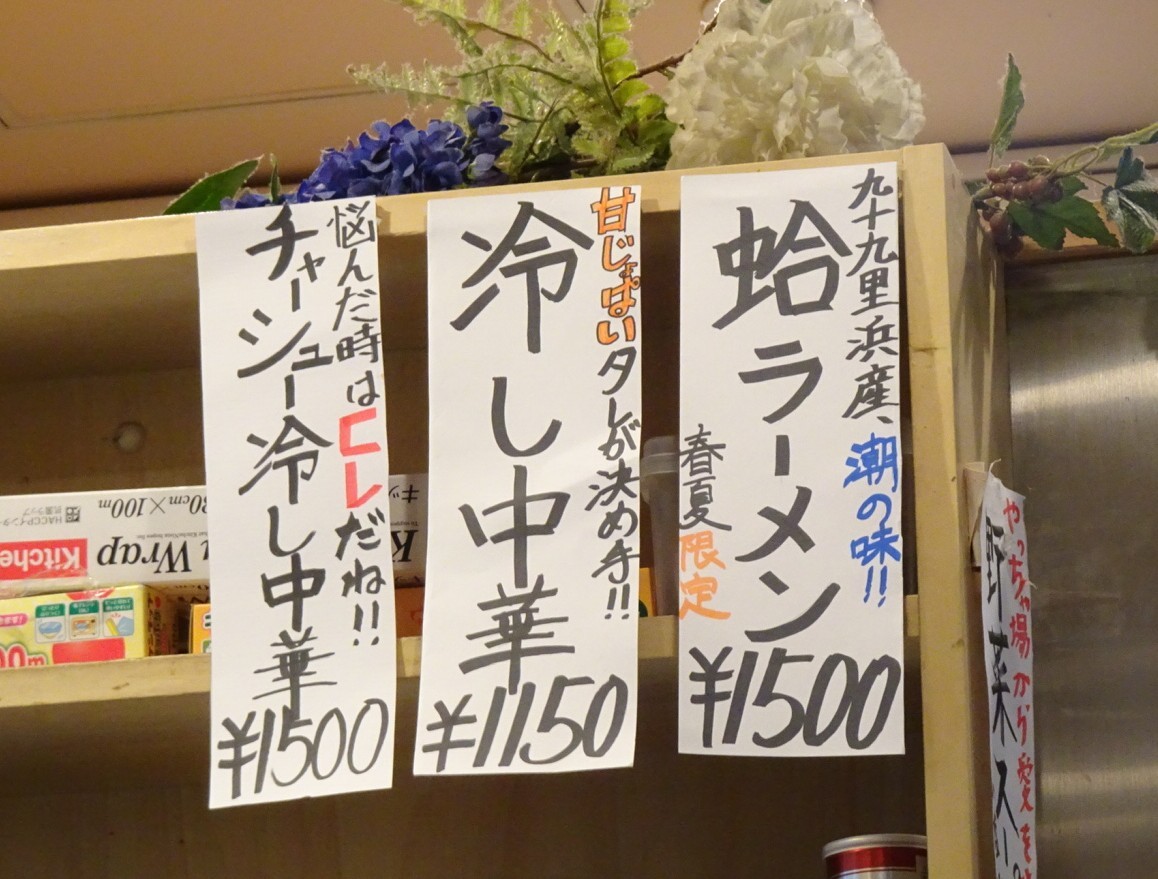 九十九里浜産、潮の味!!
蛤ラーメン
春夏限定
¥1500
甘じょぱいタレが決め手!!
冷し中華
¥1150
悩んだ時はコレだね!!
チャーシュー冷し中華
¥1500
やっちゃ場から愛を
野菜スー
Kitche
Wrap
30cm×100m
HACCP
抗菌ラップ